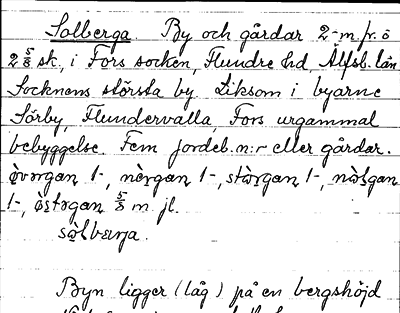 Solberga. By och gårdar 2 m fr. o
2 5/8 sk, i Fors socken, Flundre hd Älfsb. län
Socknens största by Liksom i byarne
Sörby, Flundervalla, Fors urgammal
bebyggelse. Fem jordeb. n:r eller gårdar.
1-, 1-, 1-,
1-, 5/8 m jl.

Byn ligger (låg) på en bergshöjd